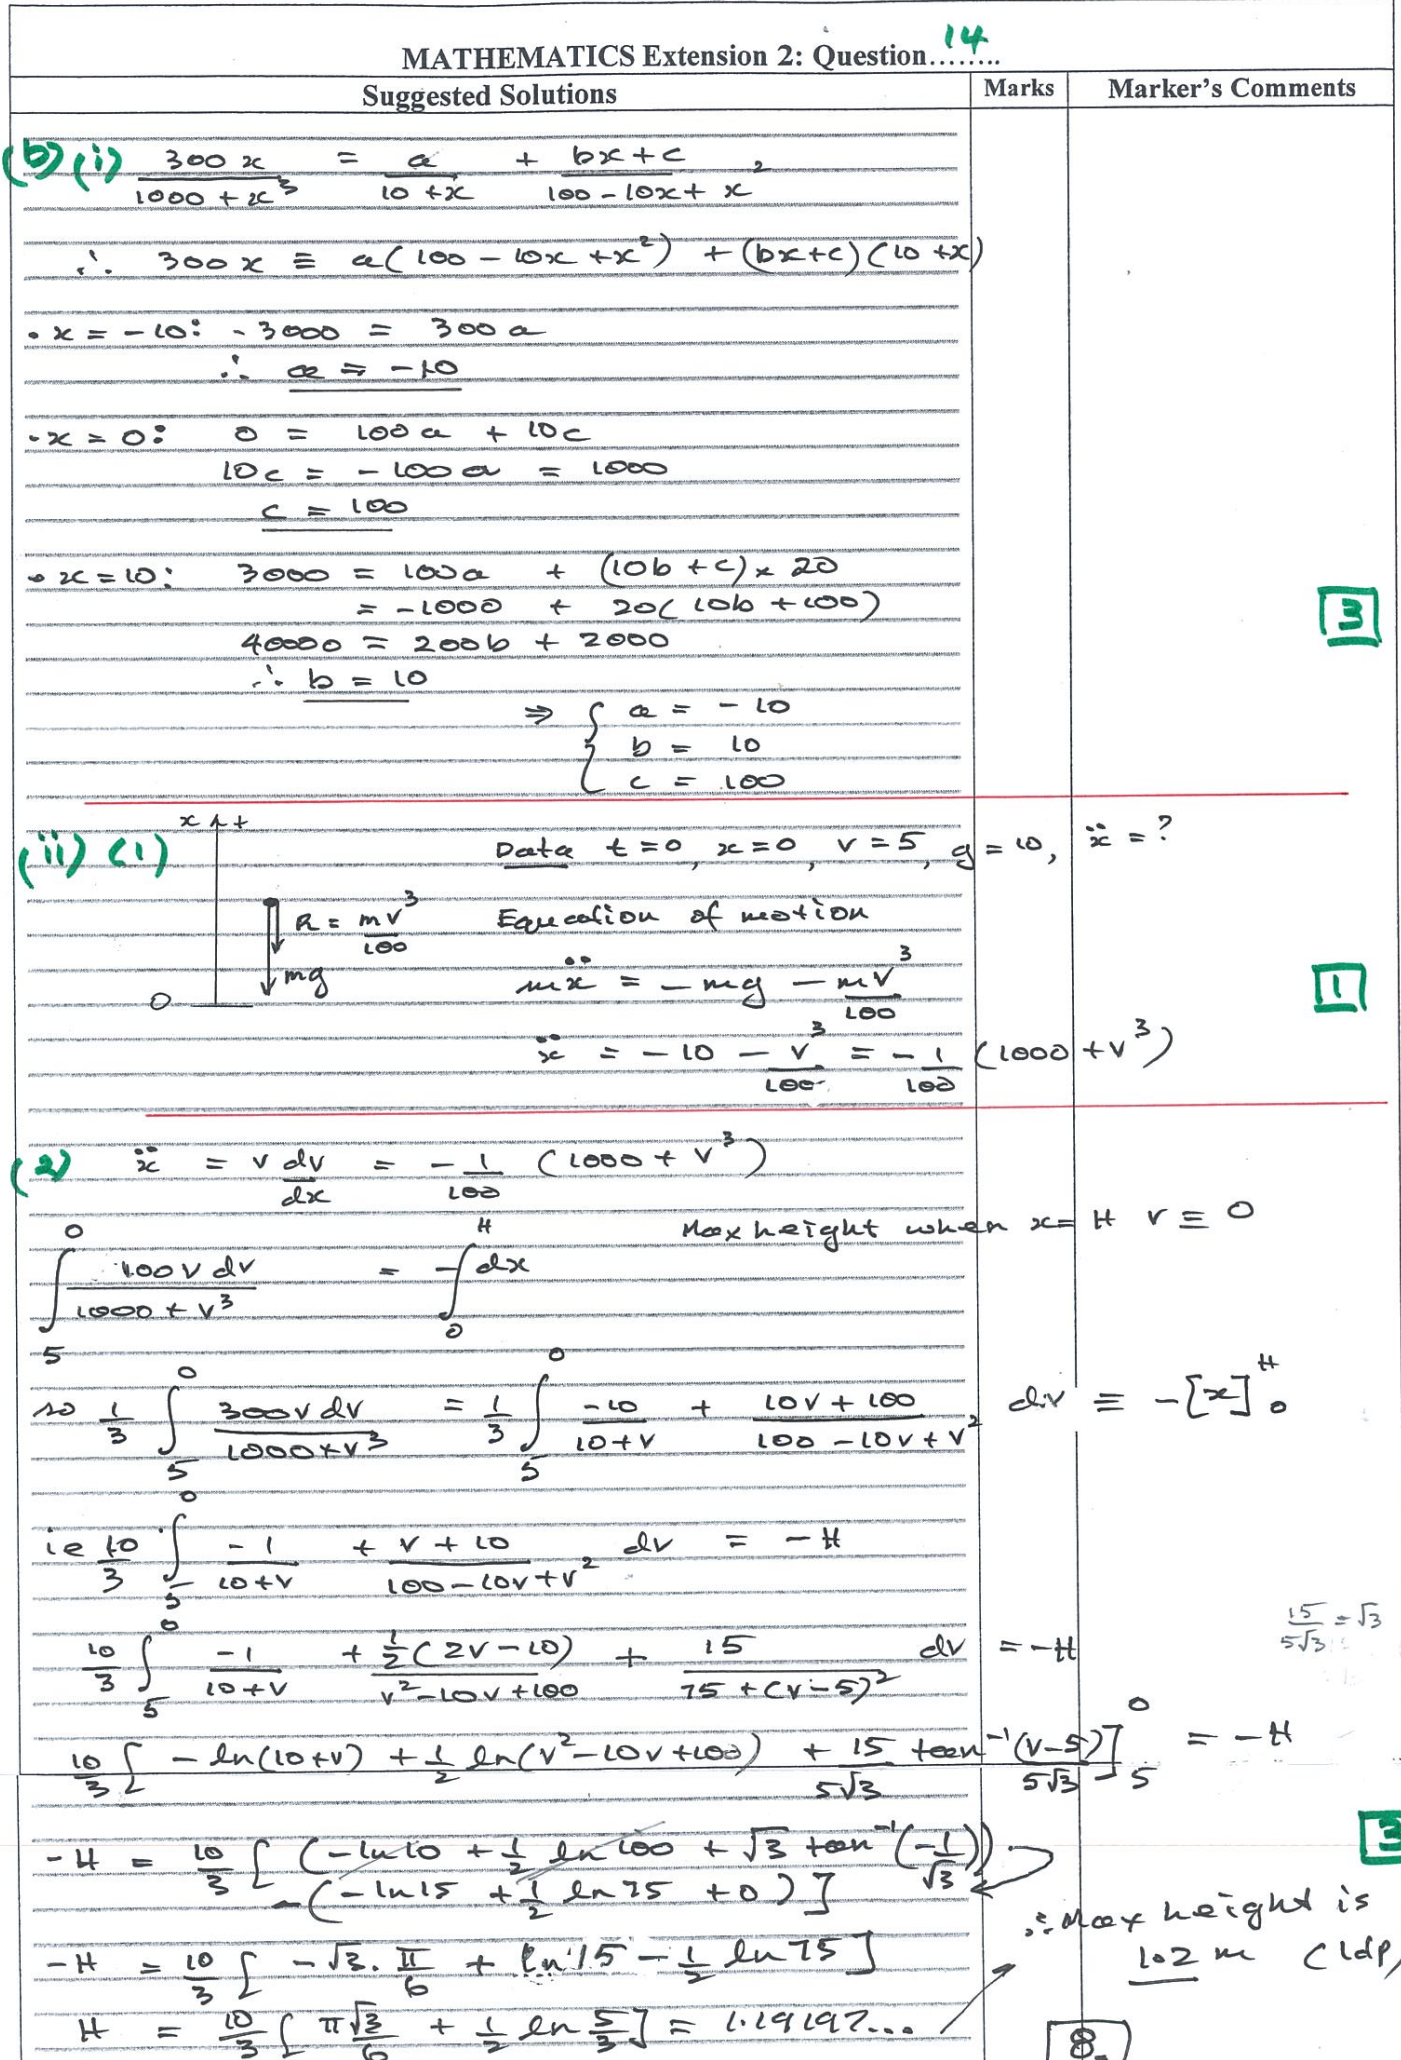 MATHEMATICS Extension 2: Question........ 14
Suggested Solutions Marks Marker's Comments
(b) (i) 300x/(1000 + x³) = a/(10 + x) + (bx + c)/(100 - 10x + x²)
∴ 300x ≡ a(100 - 10x + x²) + (bx + c)(10 + x)
• x = -10: -3000 = 300a
∴ a = -10
• x = 0: 0 = 100a + 10c
10c = -100a = 1000
c = 100
• x = 10: 3000 = 100a + (10b + c) × 20
= -1000 + 20(10b + 100)
3
40000 = 200b + 2000
∴ b = 10
⇒ { a = -10
b = 10
c = 100
(ii) (1) x ↑ + Data t = 0, x = 0, v = 5, g = 10, ẍ = ?
R = mv³/100 Equation of motion
mg mẍ = -mg - mv³/100
O
1
ẍ = -10 - v³/100 = -1/100 (1000 + v³)
(2) ẍ = v dv/dx = -1/100 (1000 + v³)
Max height when x = H v = 0
∫₅⁰ 100v dv/(1000 + v³) = -∫₀ᴴ dx
so 1/3 ∫₅⁰ 300v dv/(1000 + v³) = 1/3 ∫₅⁰ -10/(10 + v) + (10v + 100)/(100 - 10v + v²) dv = -[x]₀ᴴ
ie 10/3 ∫₅⁰ -1/(10 + v) + (v + 10)/(100 - 10v + v²) dv = -H
15/5√3 = √3
10/3 ∫₅⁰ -1/(10 + v) + ½(2v - 10)/(v² - 10v + 100) + 15/(75 + (v - 5)²) dv = -H
10/3 [-ln(10 + v) + ½ ln(v² - 10v + 100) + 15/5√3 tan⁻¹(v - 5)/5√3]₅⁰ = -H
3
-H = 10/3 [(-ln 10 + ½ ln 100 + √3 tan⁻¹(-1/√3))
-(-ln 15 + ½ ln 75 + 0)]
∴ Max height is
1.2 m (1dp)
-H = 10/3 [-√3. π/6 + ln 15 - ½ ln 75]
H = 10/3 [π√3/6 + ½ ln 5/3] = 1.19197...
8